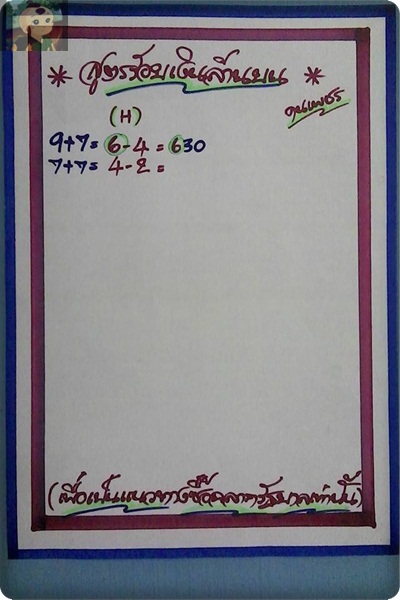 * สูตรร้อยเงินล้านบน *
ขุนเพชร
(H)
9+7= 6-4 = 630
7+7= 4-2 =
(เพื่อเป็นแนวทางซื้อสลากรัฐบาลเท่านั้น)